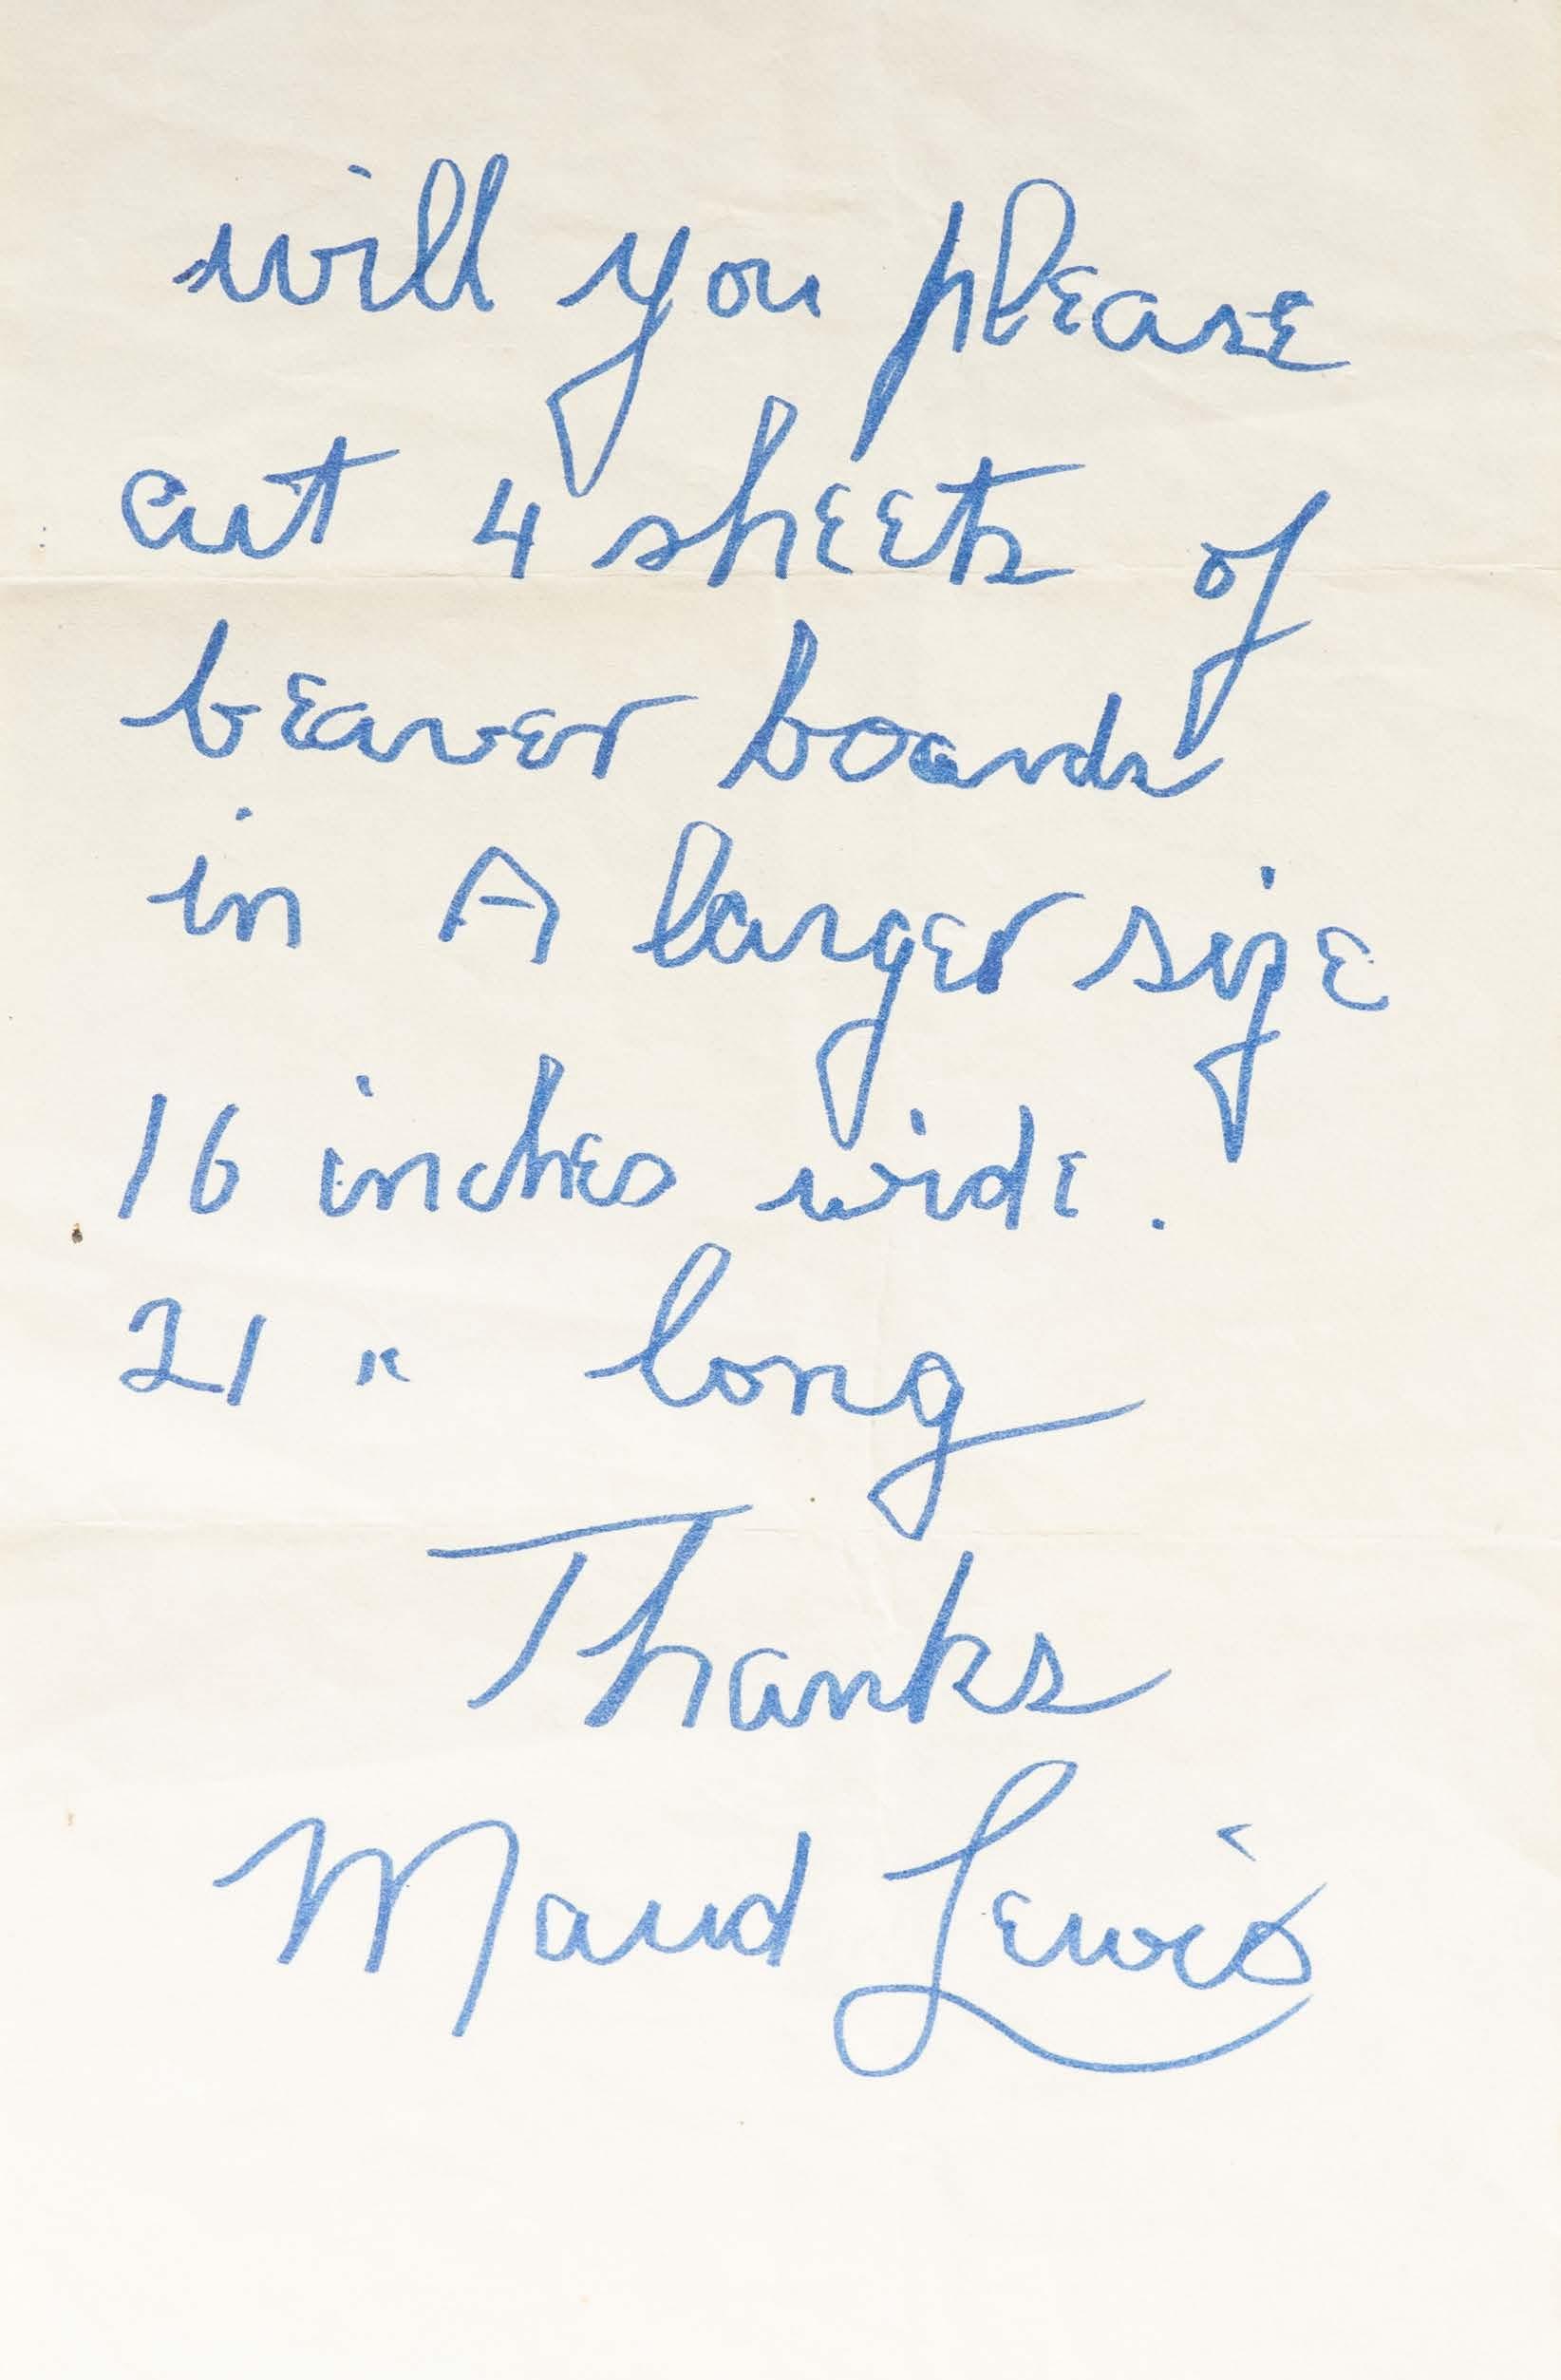 will you please
cut 4 sheets of
beaver boards
in A larger size
16 inches wide.
21 " long
Thanks
Maud Lewis